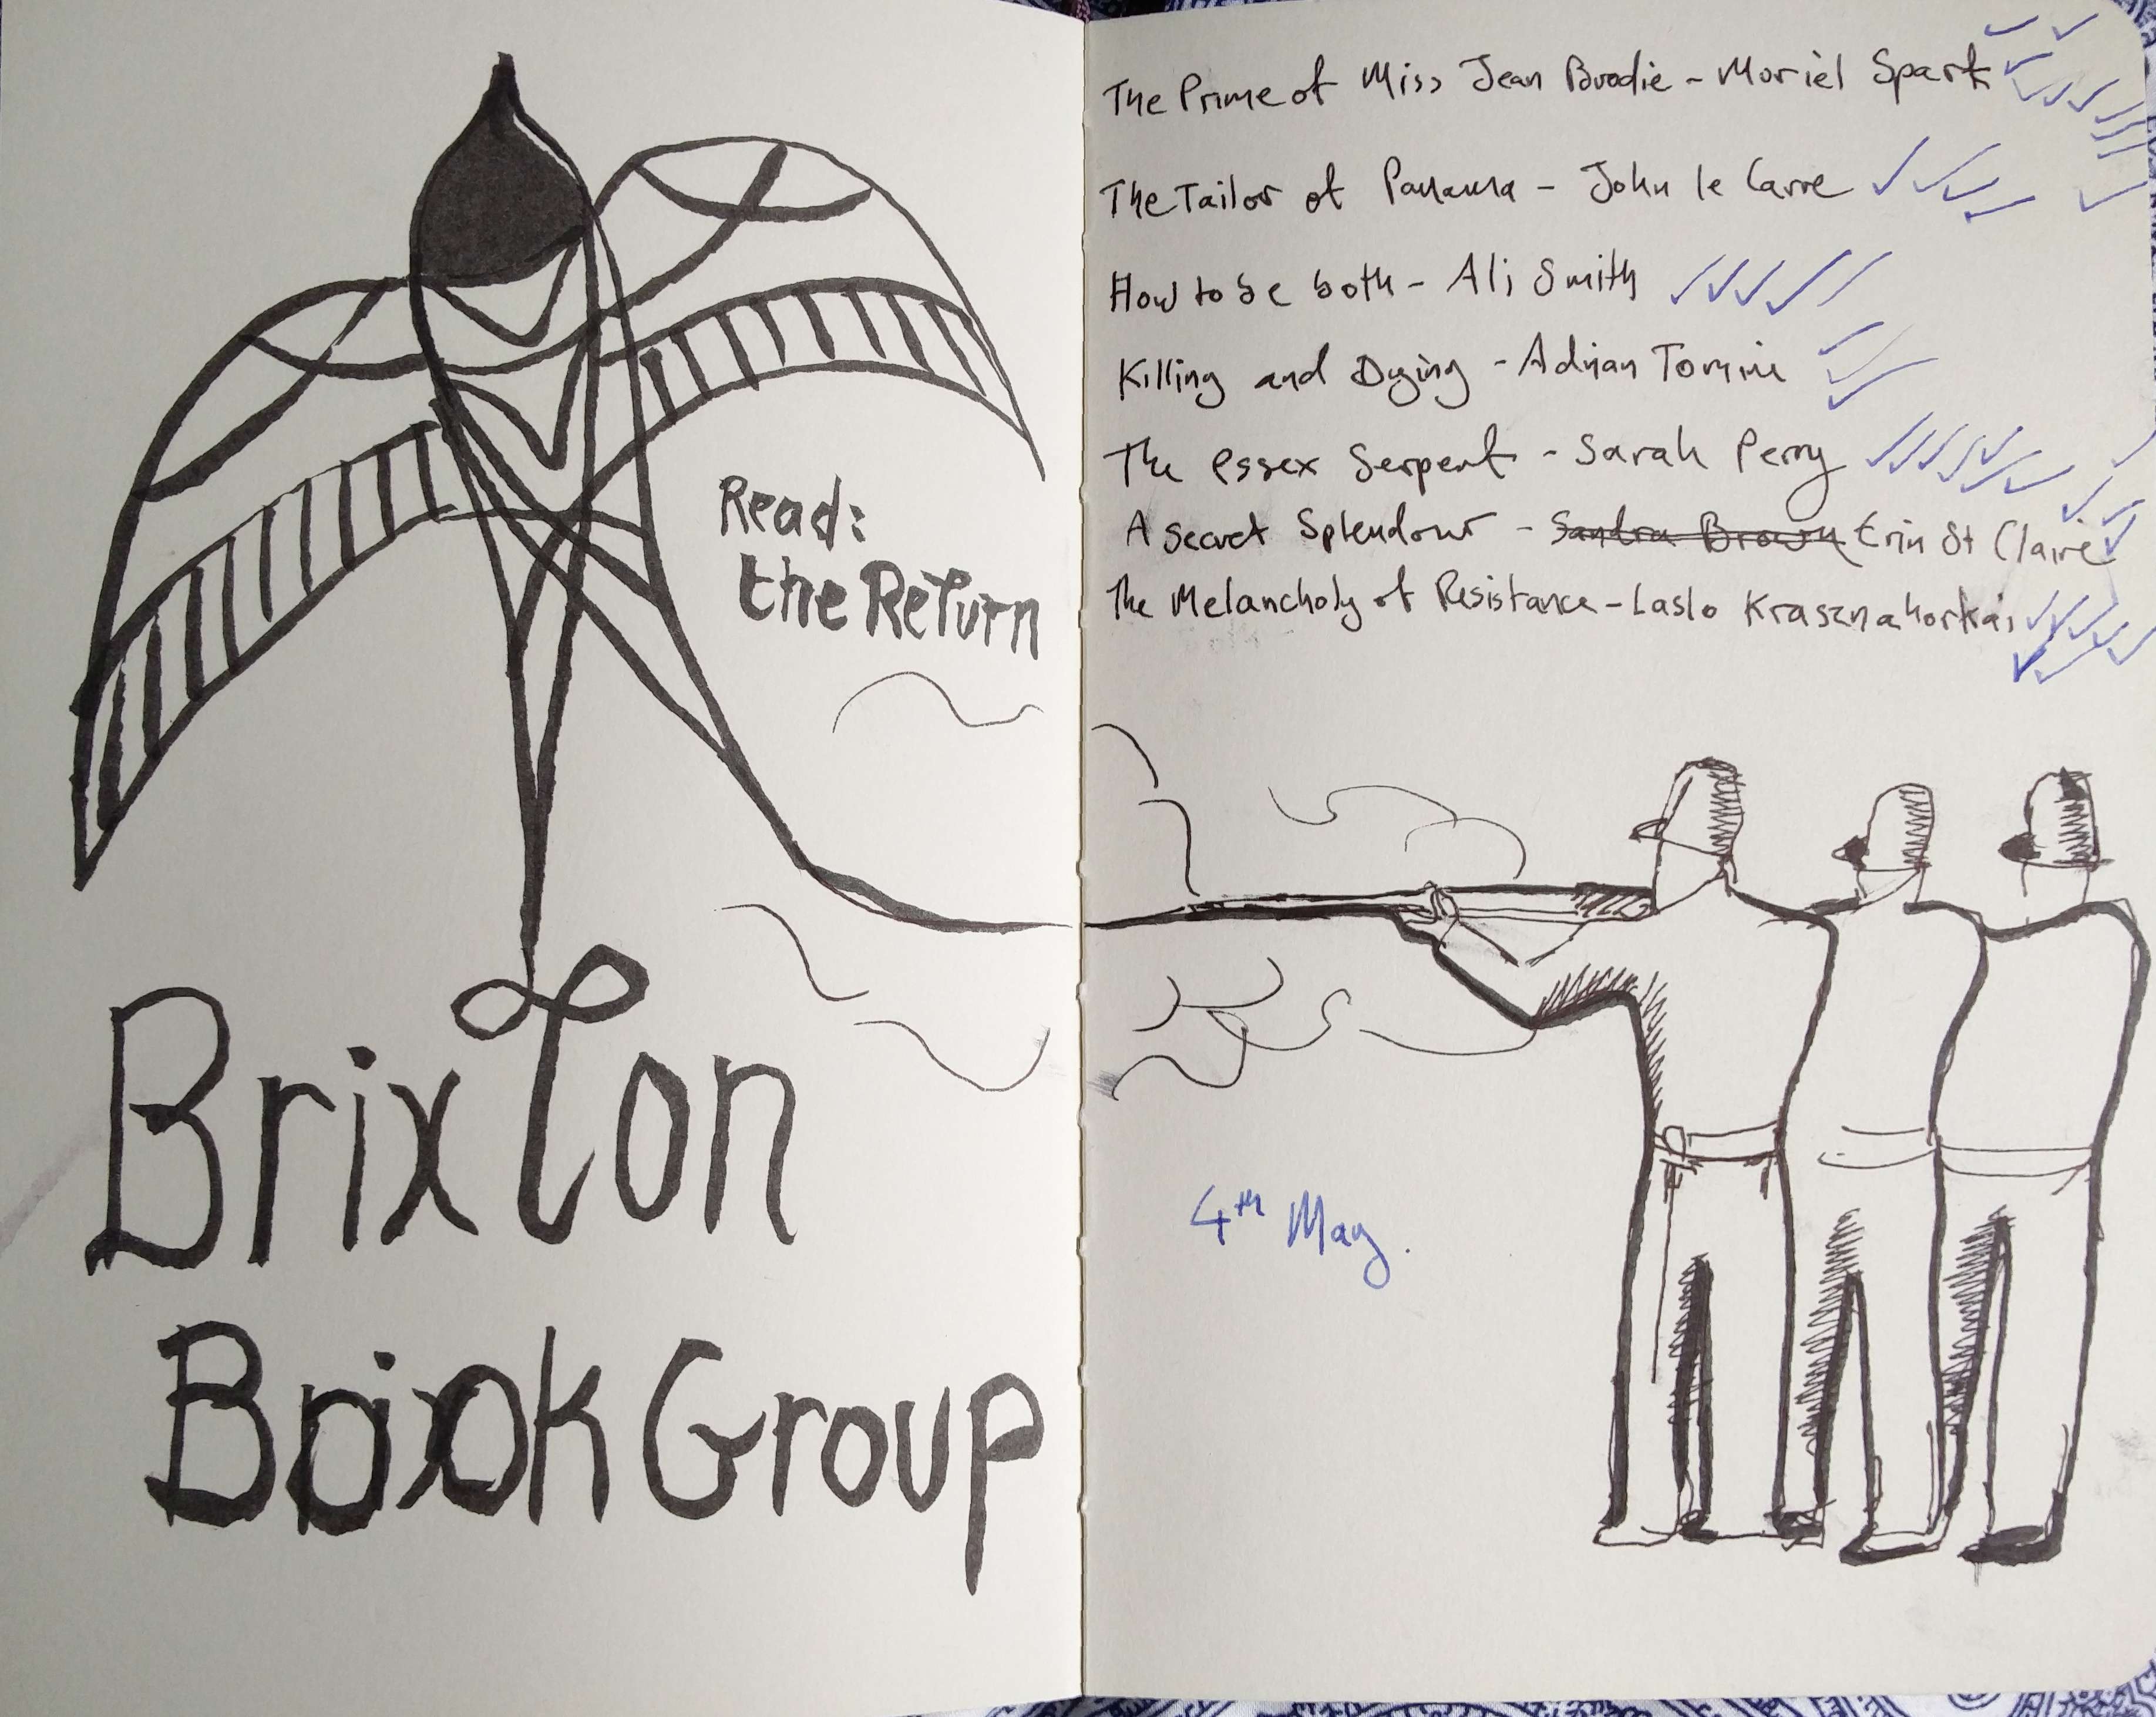 Read:
the Return
Brixton
Book Group
The Prime of Miss Jean Brodie - Muriel Spark
The Tailor of Panama - John le Carre
How to be both - Ali Smith
Killing and Dying - Adrian Tomine
The Essex Serpent - Sarah Perry
A Secret Splendour - Sandra Brown Erin St Claire
The Melancholy of Resistance - Laslo Krasznahorkai
4th May.